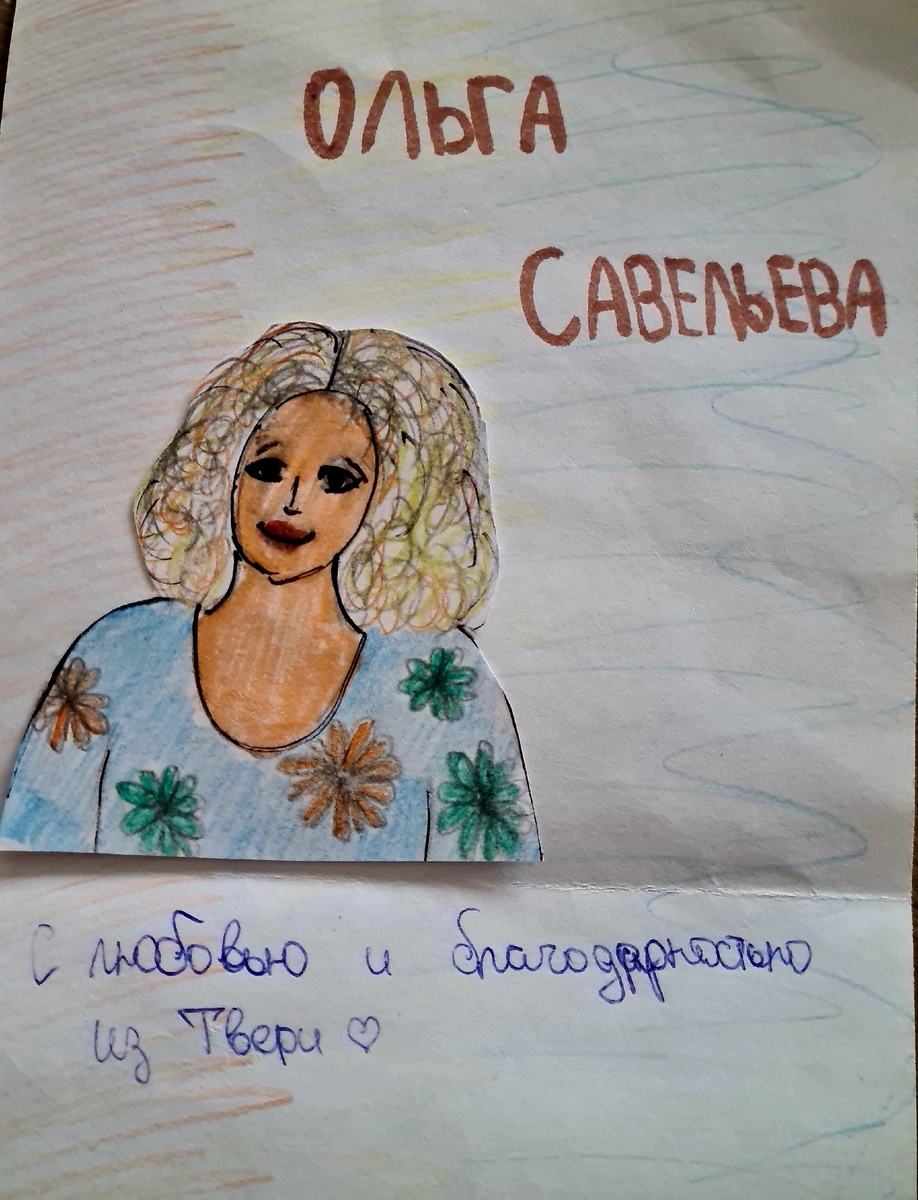 ОЛЬГА
САВЕЛЬЕВА
С любовью и благодарностью
из Твери ♡